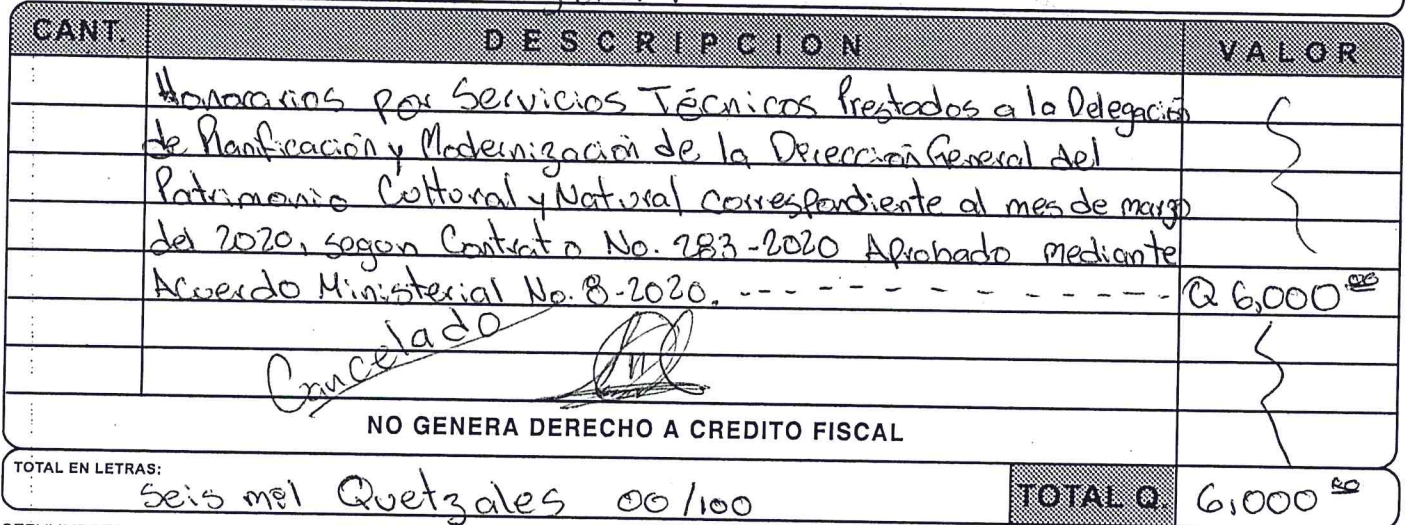 CANT. DESCRIPCION VALOR
Honorarios por Servicios Técnicos Prestados a la Delegación
de Planficación y Modernización de la Dereccion General del
Patrimonio Coltoral y Natural correspondiente al mes de marzo
del 2020, segon Contrato No. 283-2020 Aprobado mediante
Acuerdo Ministerial No. 8-2020. - - - - - - - - - - - - Q 6,000.00
Cancelado
NO GENERA DERECHO A CREDITO FISCAL
TOTAL EN LETRAS:
Seis mil Quetzales 00/100 TOTAL Q. 6,000 00